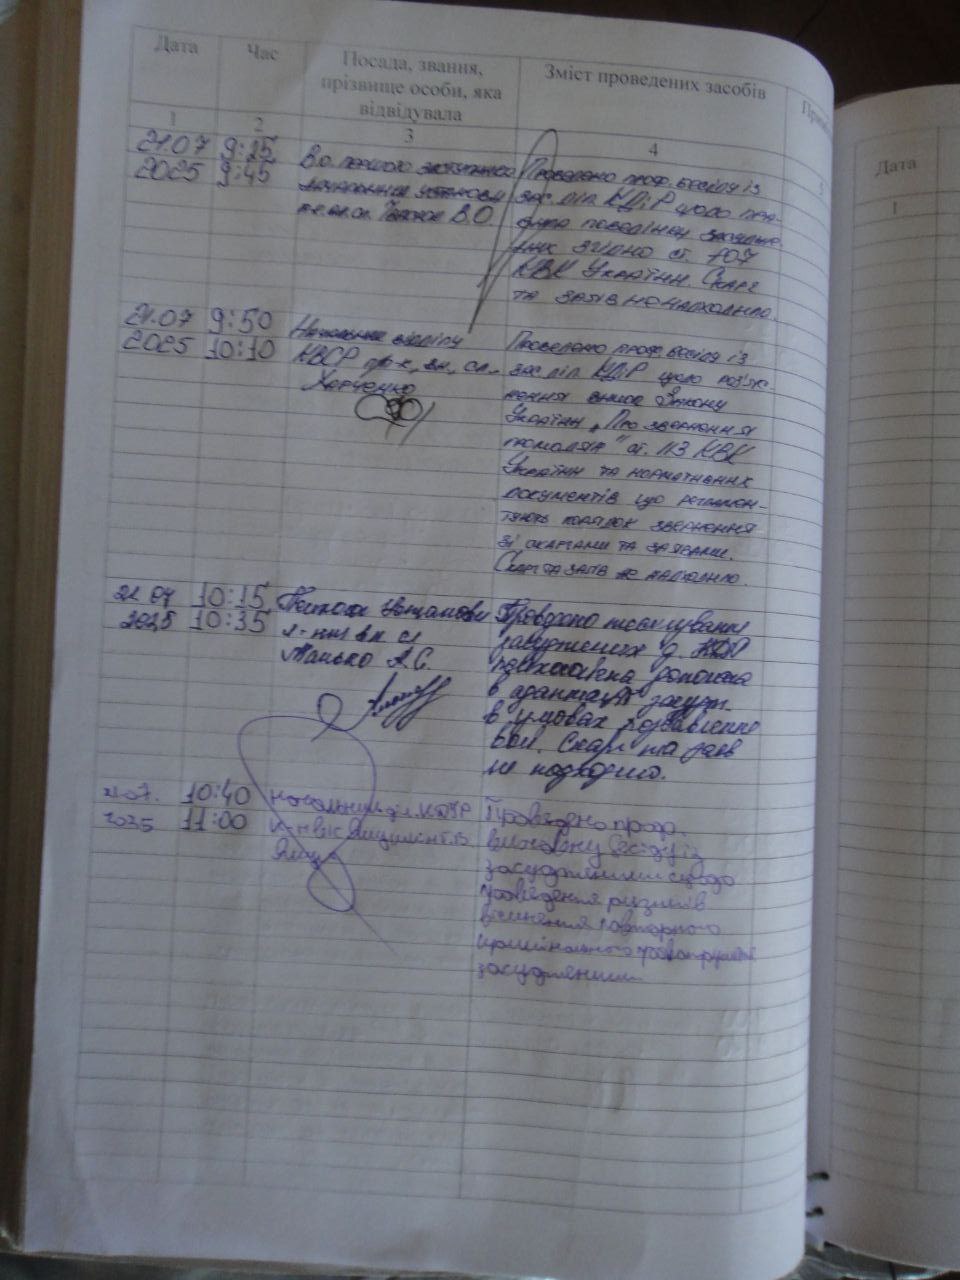 Дата Час Посада, звання, Зміст проведених засобів
прізвище особи, яка
відвідувала
1 2 3 4 5
21.07 9:25 В.о. першого заступника Проведено проф. бесіди із
2025 9:45 начальника установи зас. діл. КДіР щодо
В.О. поведінки
згідно ст. 107
КВК України. Скарг
та заяв не надходило.
21.07 9:50 Начальник відділу Проведено проф. бесіди із
2025 10:10 КВСР вн. сл. зас. діл. КДіР щодо роз'яс-
Харченко нення вимог Закону
України „Про звернення
громадян" ст. 113 КВК
України та нормативних
документів що регламен-
тують порядок звернення
зі скаргами та заявами.
Скарг та заяв не надходило.
21.07 10:15 Проведено
2025 10:35 л-нт вн сл засуджених д. КДіР
А.С. допомога
в адаптації засудж.
в умовах позбавлення
волі. Скарг та заяв
не надходило.
21.07. 10:40 начальник діл. КДіР Проведено проф.
2025 11:00 виховну бесіду із
засудженими щодо
ризиків
вчинення повторного
кримінального правопорушення
засудженим.
Дата
1